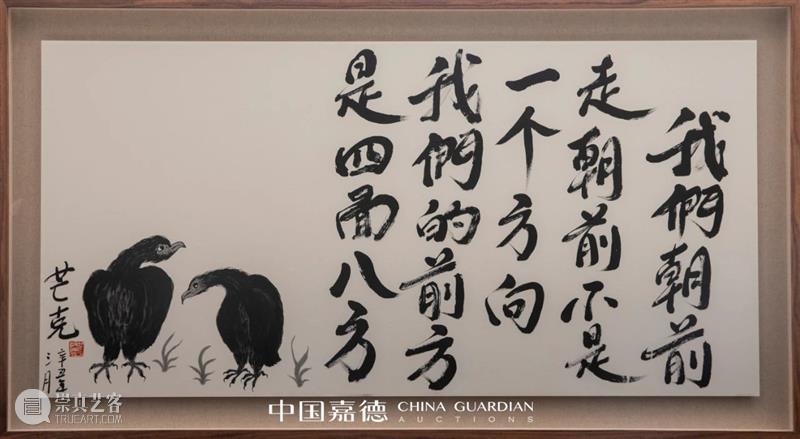 我們朝前
走朝前不是
一个方向
我們的前方
是四面八方
芒克
辛丑
三月
崇真艺客
中国嘉德 CHINA GUARDIAN
AUCTIONS